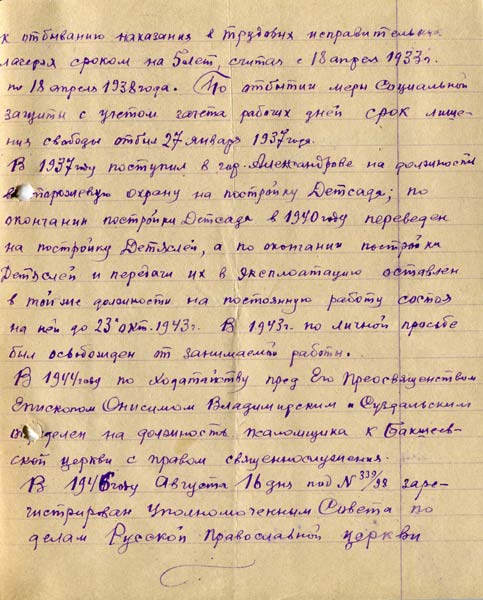 к отбыванию наказания в трудовых исправительных
лагерях сроком на 5 лет, считая с 18 апреля 1933 г.
по 18 апреля 1938 года. По отбытии меры Социальной
защиты с учетом зачета рабочих дней срок лише-
ния свободы отбыл 27 января 1937 года.
В 1937 году поступил в гор. Александрове на должность
в сторожевую охрану на постройку Детсада; по
окончании постройки Детсада в 1940 году переведен
на постройку Детяслей, а по окончании постройки
Детяслей и передачи их в эксплоатацию оставлен
в той же должности на постоянную работу состоя
на ней до 23 окт. 1943 г. В 1943 г. по личной просьбе
был освобожден от занимаемой работы.
В 1944 году по ходатайству пред Его Преосвященством
Епископом Онисимом Владимирским и Суздальским
определен на должность псаломщика к Бакшеев-
ской церкви с правом священнослужения.
В 1946 году Августа 16 дня под № 339/98 заре-
гистрирован Уполномоченным Совета по
делам Русской Православной церкви